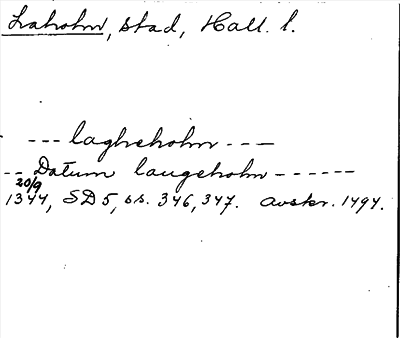 Laholm, stad, Hall. l.
--- lagheholm ---
-- Datum laugeholm ------
20/9
1344, SD 5, ss. 346, 347. avskr. 1494.